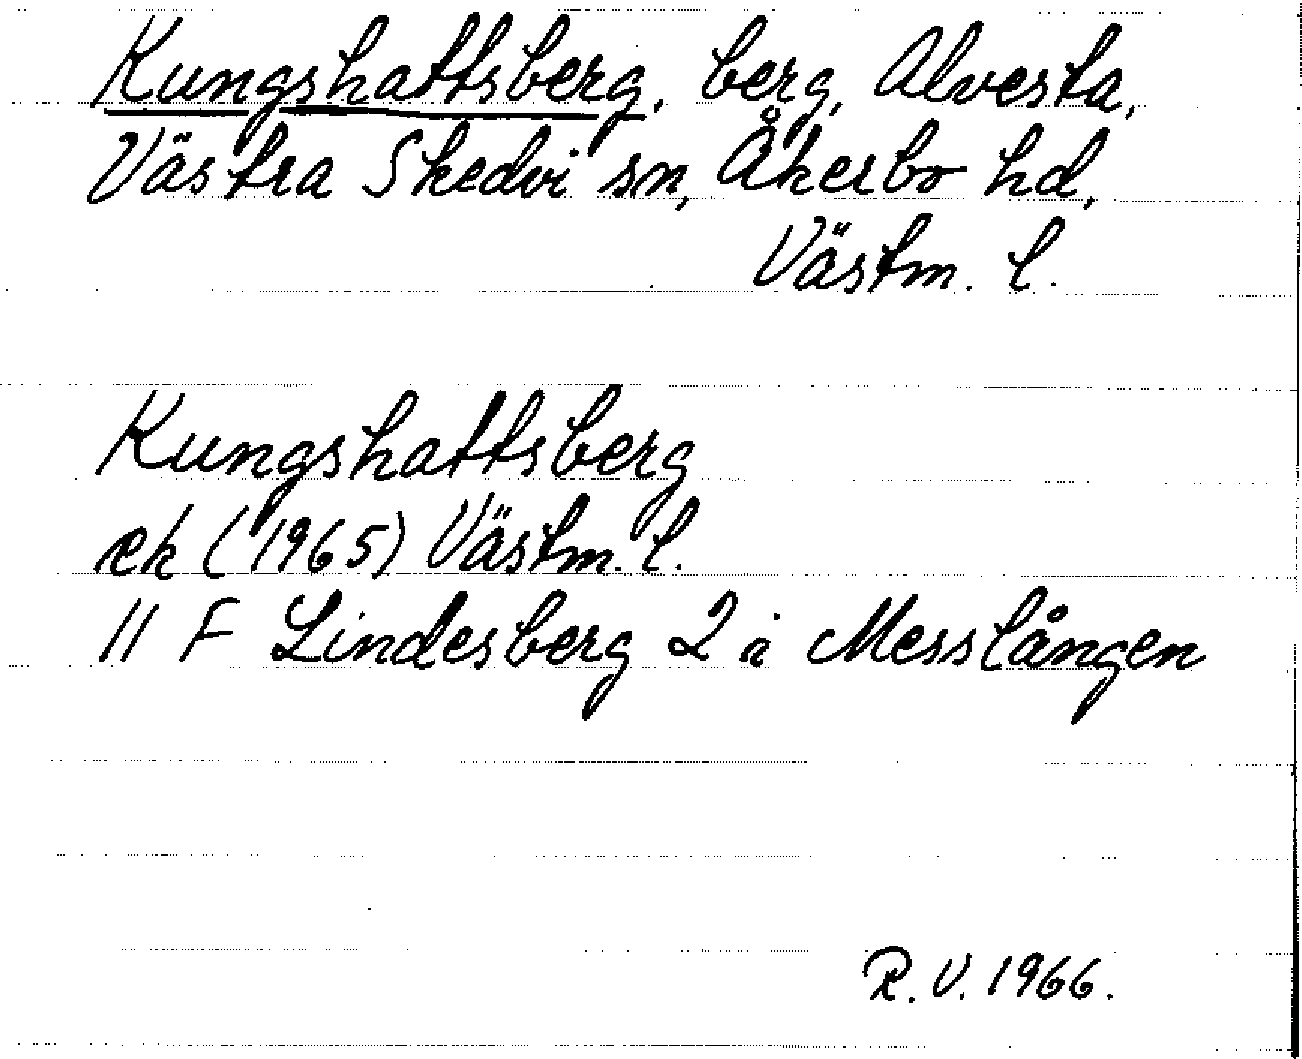 Kungshattsberg, berg, Alvesta,
Västra Skedvi sn, Åkerbo hd,
Västm. l.
Kungshattsberg
ek (1965) Västm. l.
11 F Lindesberg 2 i Messlången
R.V. 1966.